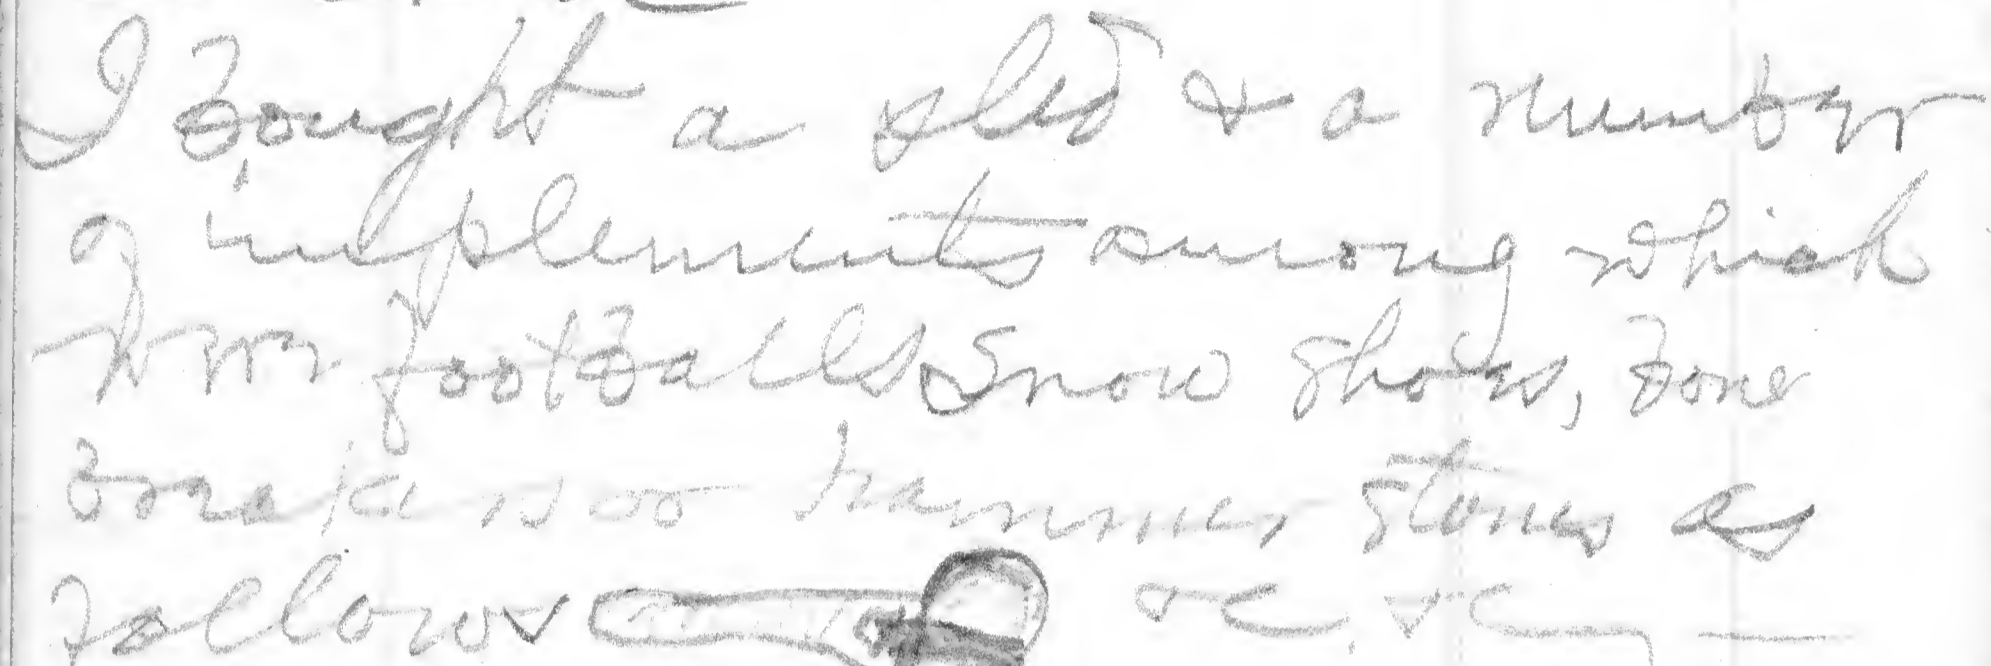 I bought a sled & a number
of implements among which
were footballs Snow Shoes, bone
hammer stones as
follows &c. &c, —